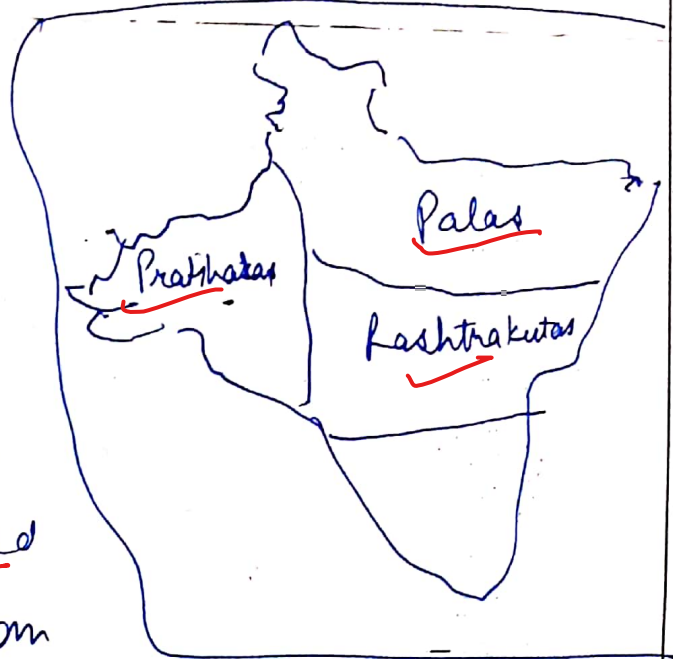 Palas
Pratiharas
Rashtrakutas
d
om